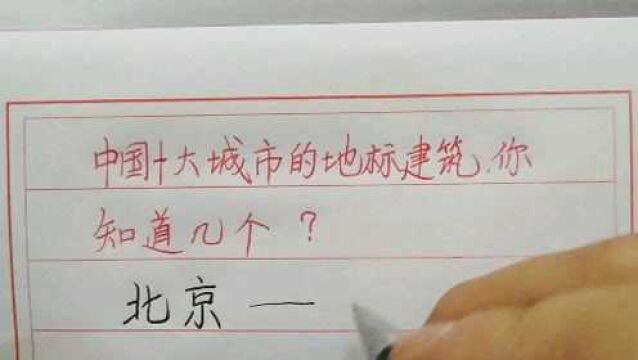 中国十大城市的地标建筑,你
知道几个？
北京 —